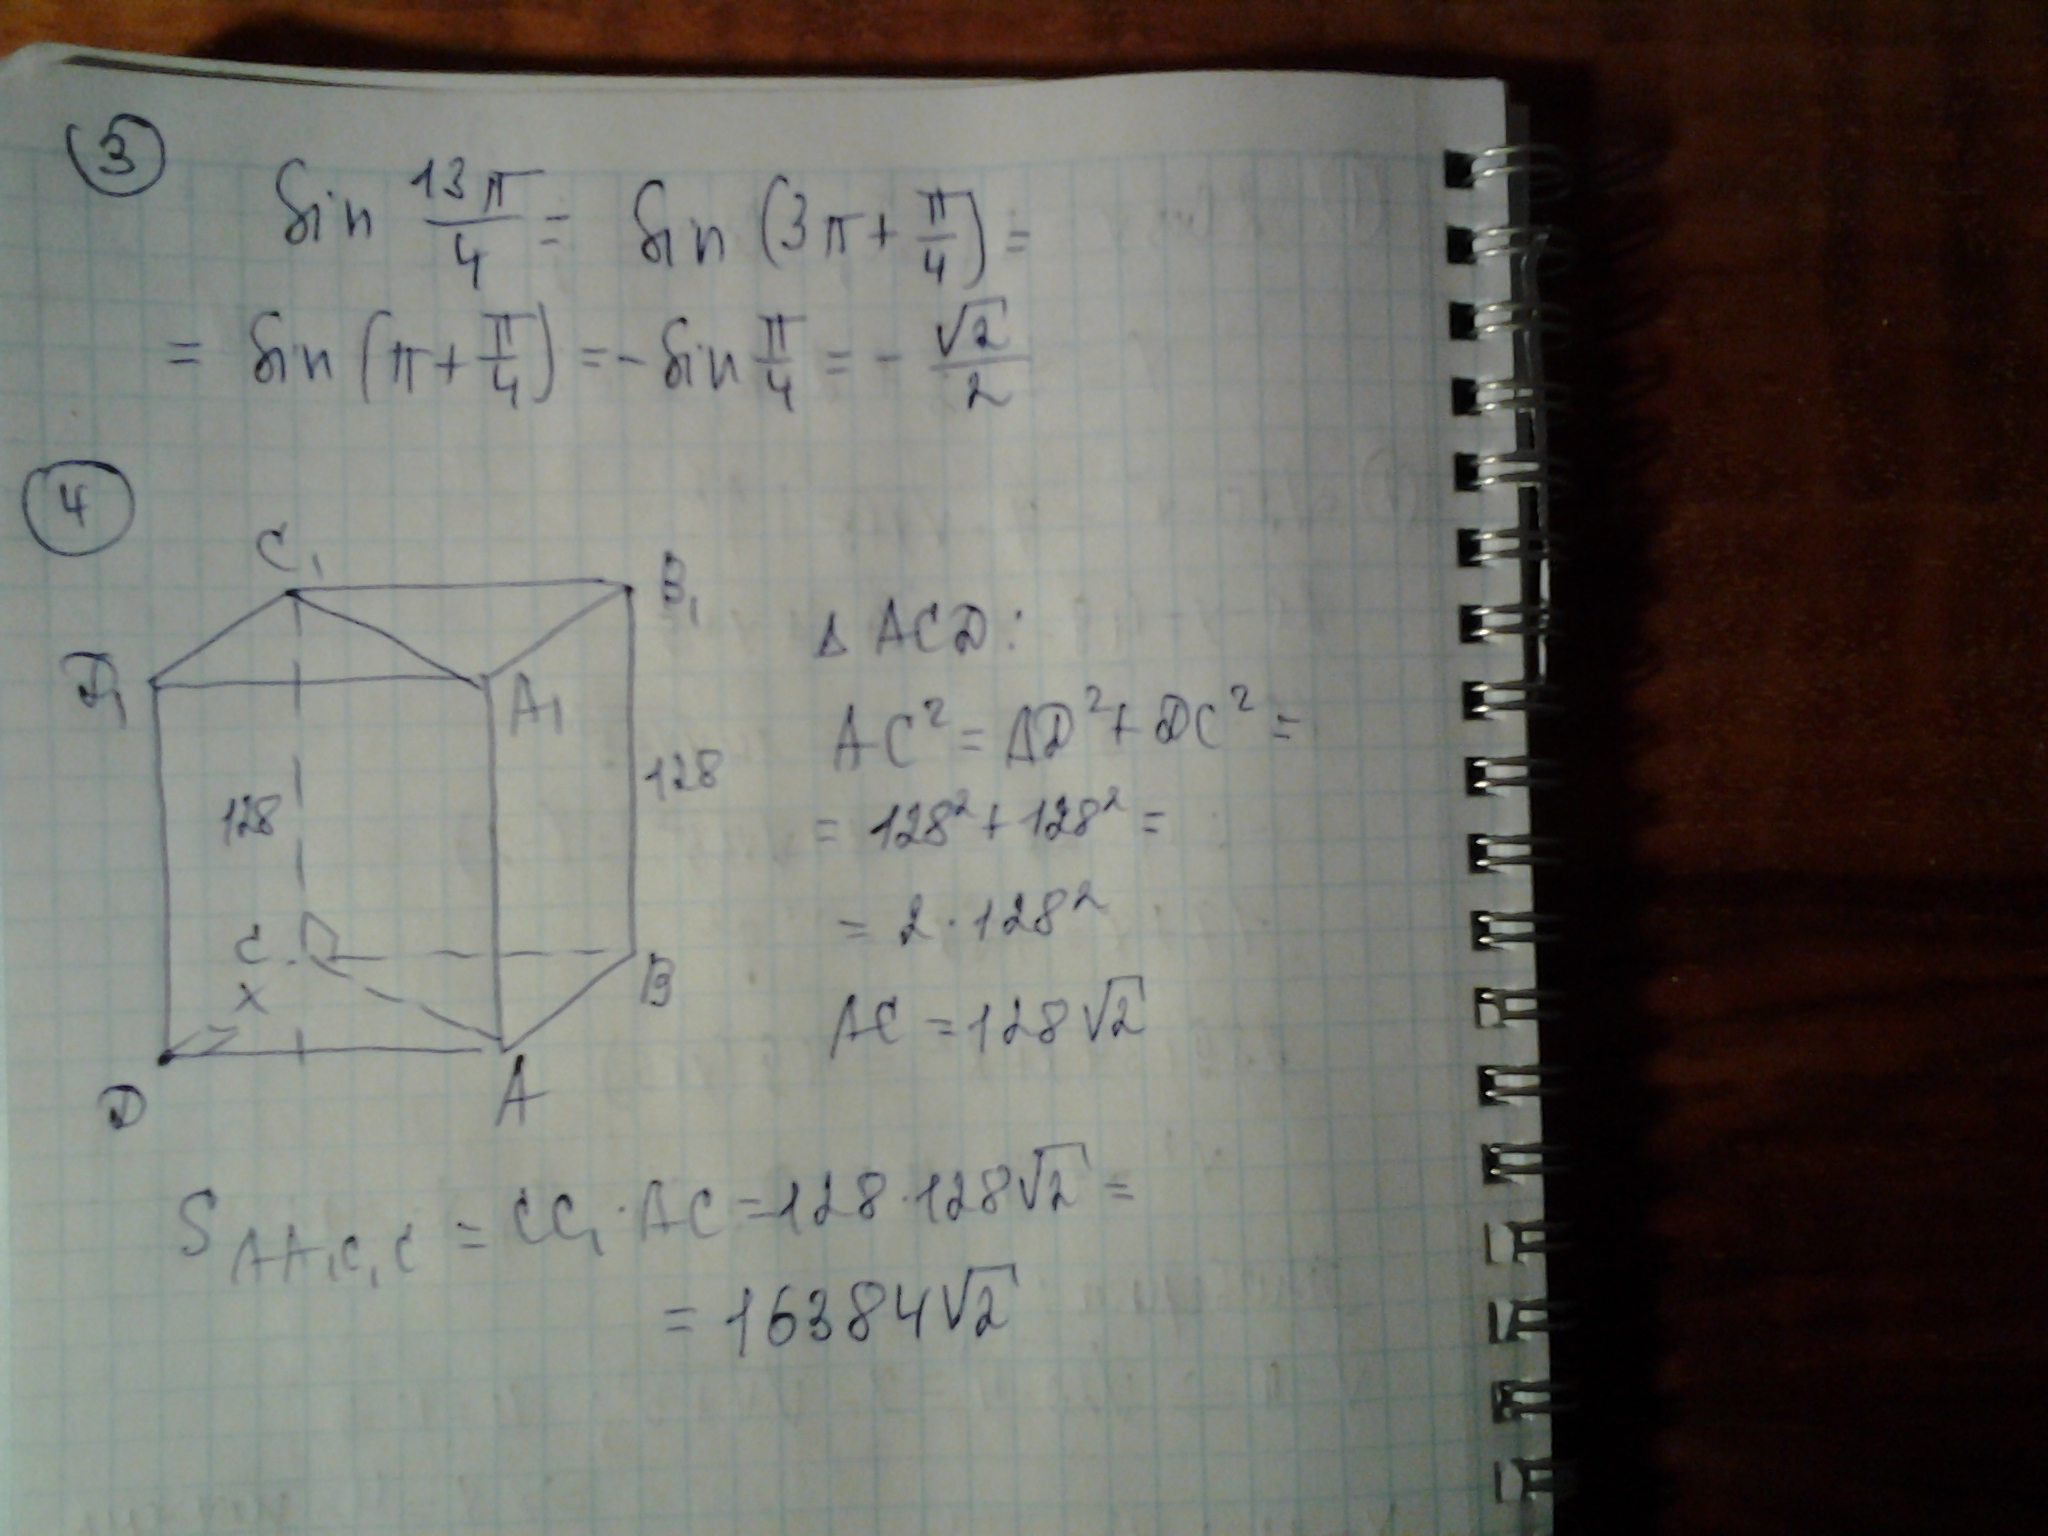 3
sin 13π/4 = sin (3π + π/4) =
= sin (π + π/4) = - sin π/4 = - √2/2
4
C₁
B₁
D₁
A₁
128
128
C
X
B
D
A
Δ ACD:
AC² = AD² + DC² =
= 128² + 128² =
= 2 · 128²
AC = 128√2
S AA₁C₁C = CC₁ · AC = 128 · 128√2 =
= 16384√2